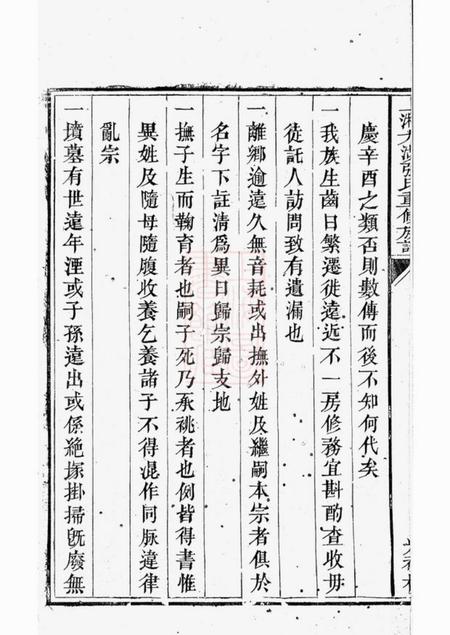 張氏重修族譜
慶辛酉之類否則數傳而後不知何代矣
一我族生齒日繁遷徙遠近不一房修務宜斟酌查收毋
從託人訪問致有遺漏也
一離鄉逾遠久無音耗或出撫外姓及繼嗣本宗者俱於
名字下註清爲異日歸宗歸支地
一撫子生而鞠育者也嗣子死乃承祧者也例皆得書惟
異姓及隨母隨腹收養乞養諸子不得混作同脉違律
亂宗
一墳墓有世遠年湮或子孫遠出或係絶塚掛掃旣廢無